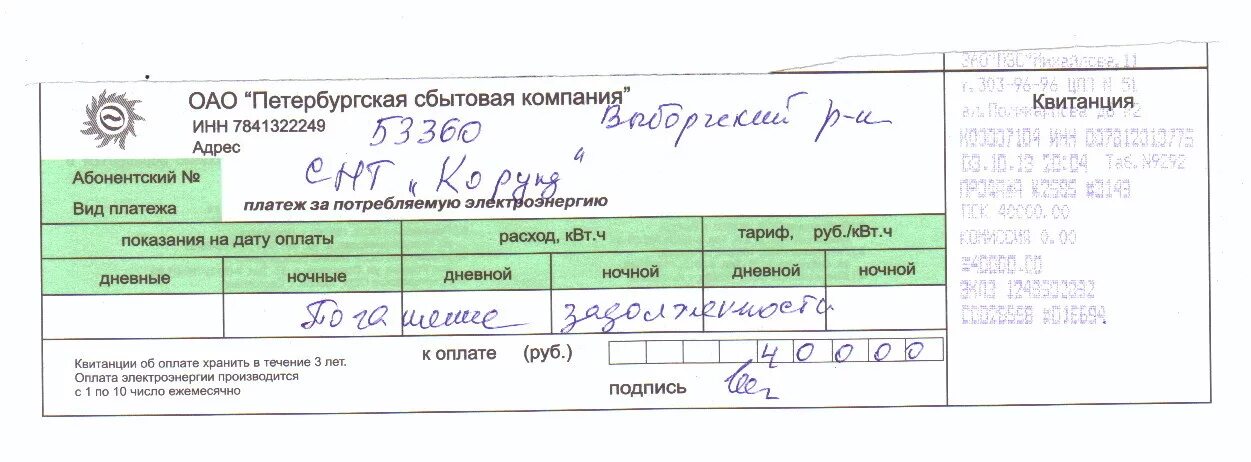 ОАО "Петербургская сбытовая компания"
ИНН 7841322249 53360 Выборгский р-н
Адрес
Абонентский № СНТ „Корунд"
Вид платежа платеж за потребляемую электроэнергию
показания на дату оплаты расход, кВт.ч тариф, руб./кВт.ч
дневные ночные дневной ночной дневной ночной
Погашение задолженности
Квитанции об оплате хранить в течение 3 лет.
Оплата электроэнергии производится
с 1 по 10 число ежемесячно
к оплате (руб.) 40000
подпись
Квитанция
г. 303-96-96 ЦПП N 51
03.10.13 20:04 Таб.N9292
ПСК 40000.00
КОМИССИЯ 0.00
=40000.00